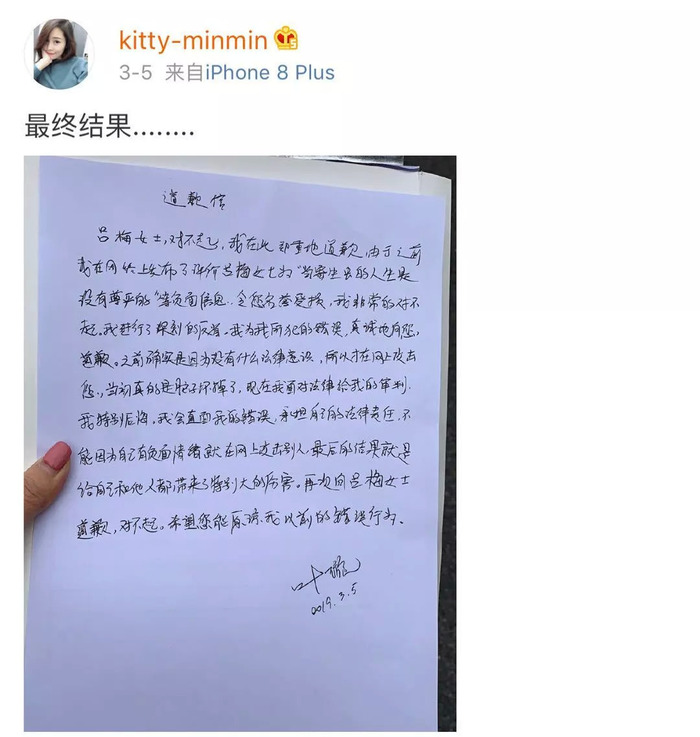 kitty-minmin
3-5 来自iPhone 8 Plus
最终结果........
道歉信
吕梅女士,对不起,我在此郑重地道歉,由于之前
我在网络上发布了评价吕梅女士为“当寄生虫的人生是
没有尊严的”等负面信息.令您名誉受损,我非常的对不
起.我进行了深刻的反省.我为我所犯的错误,真诚地向您,
道歉.之前确实是因为没有什么法律意识,所以才在网上攻击
您.,当初真的是脑子坏掉了,现在我面对法律给我的审判.
我特别后悔.我会直面我的错误,承担自己的法律责任,不
能因为自己有负面情绪就在网上攻击别人,最后的结果就是
给自己和他人都带来了特别大的伤害。再次向吕梅女士
道歉,对不起。希望您能原谅我以前的错误行为、
叶璇
2019.3.5